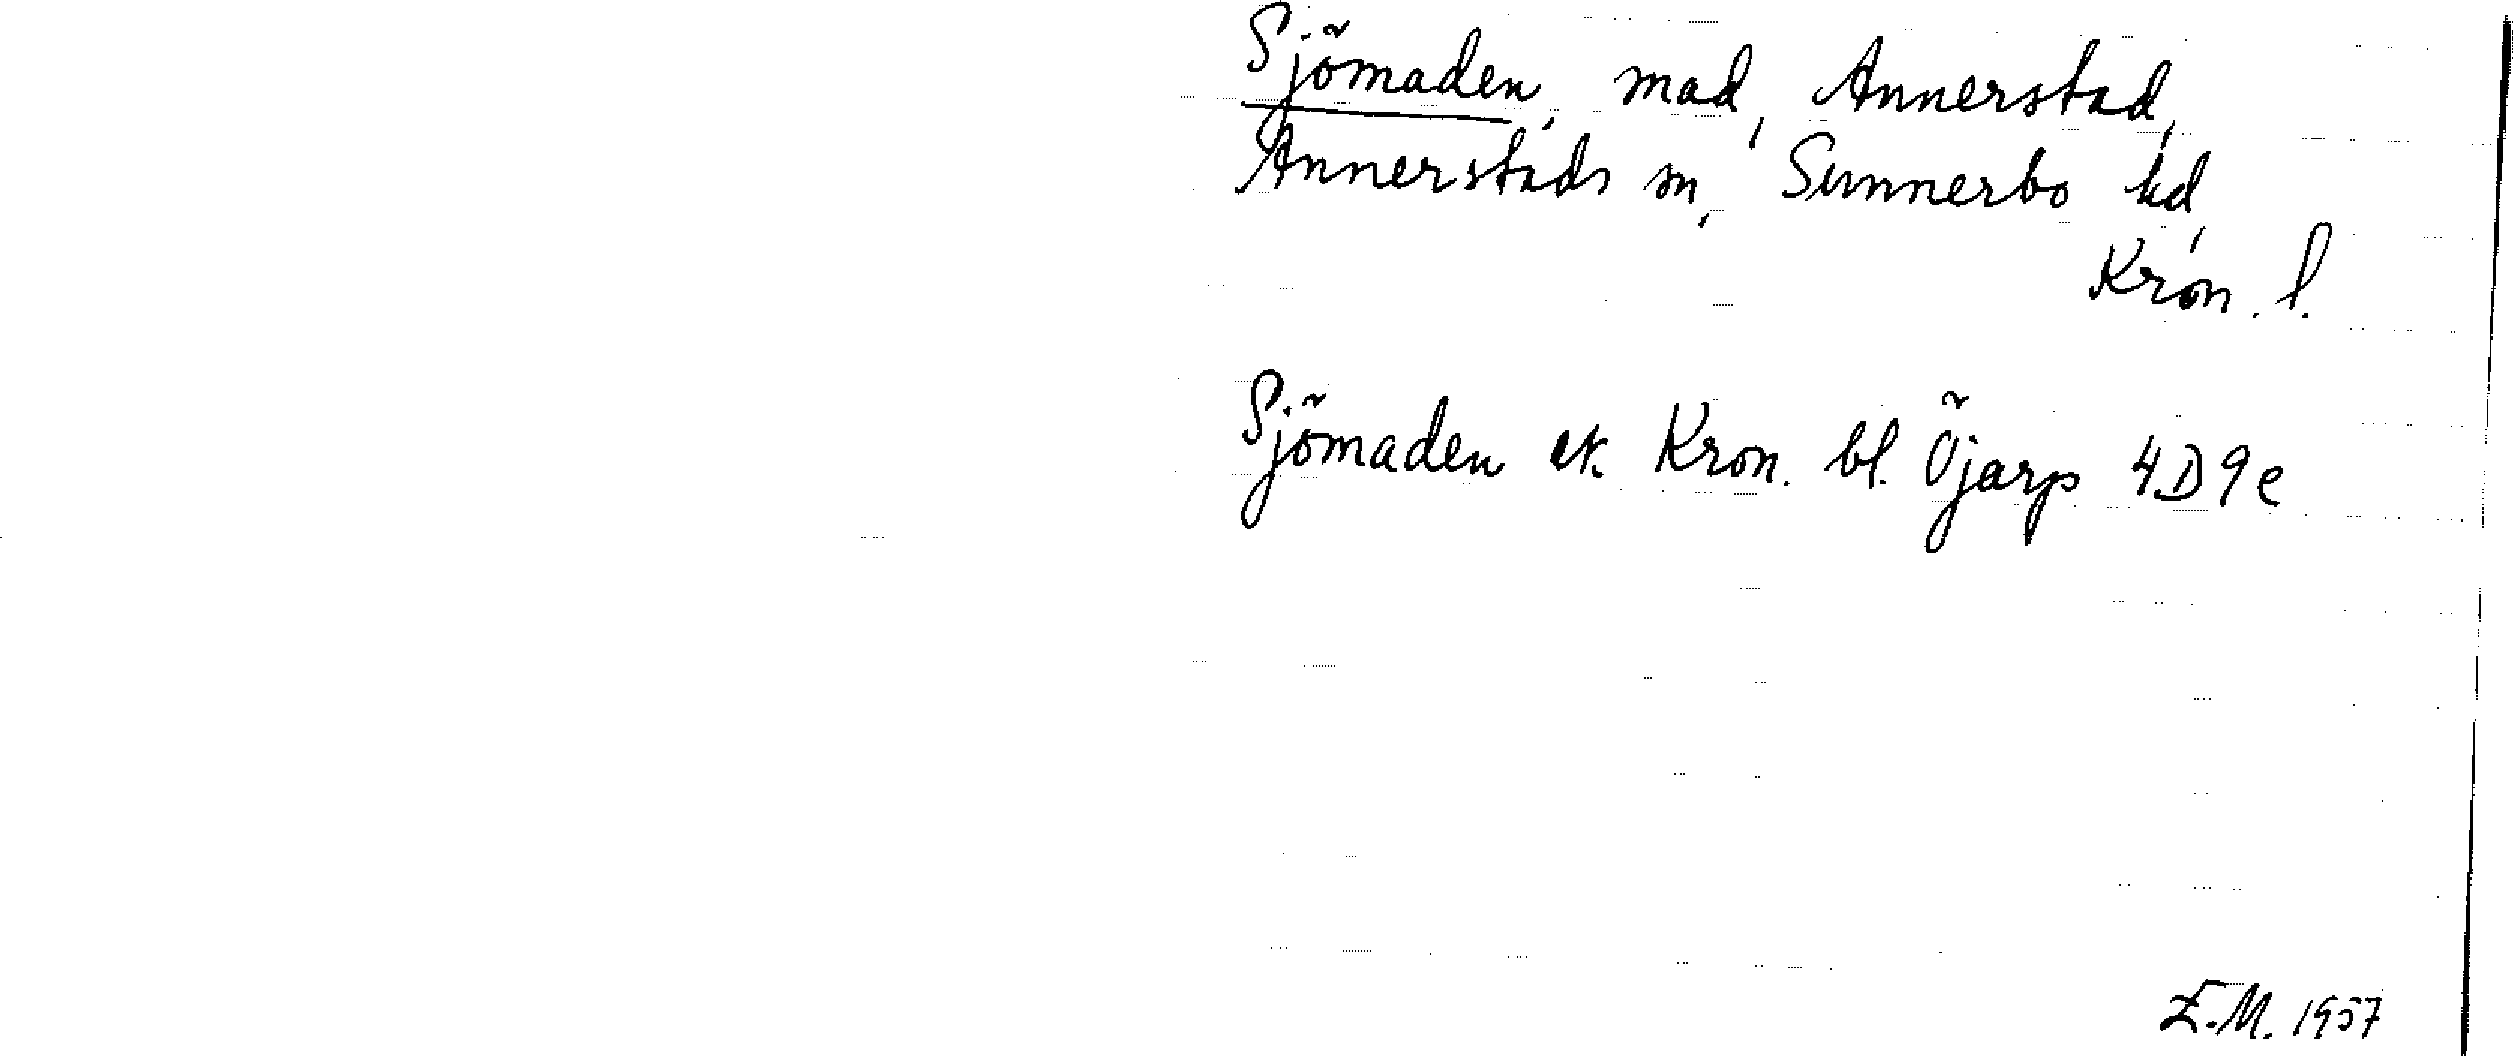 Sjömaden, mad, Annerstad,
Annerstads sn, Sunnerbo hd,
Kron. l.
Sjömaden ek Kron. bl. Öjarp 4D9e
E.M. 1957